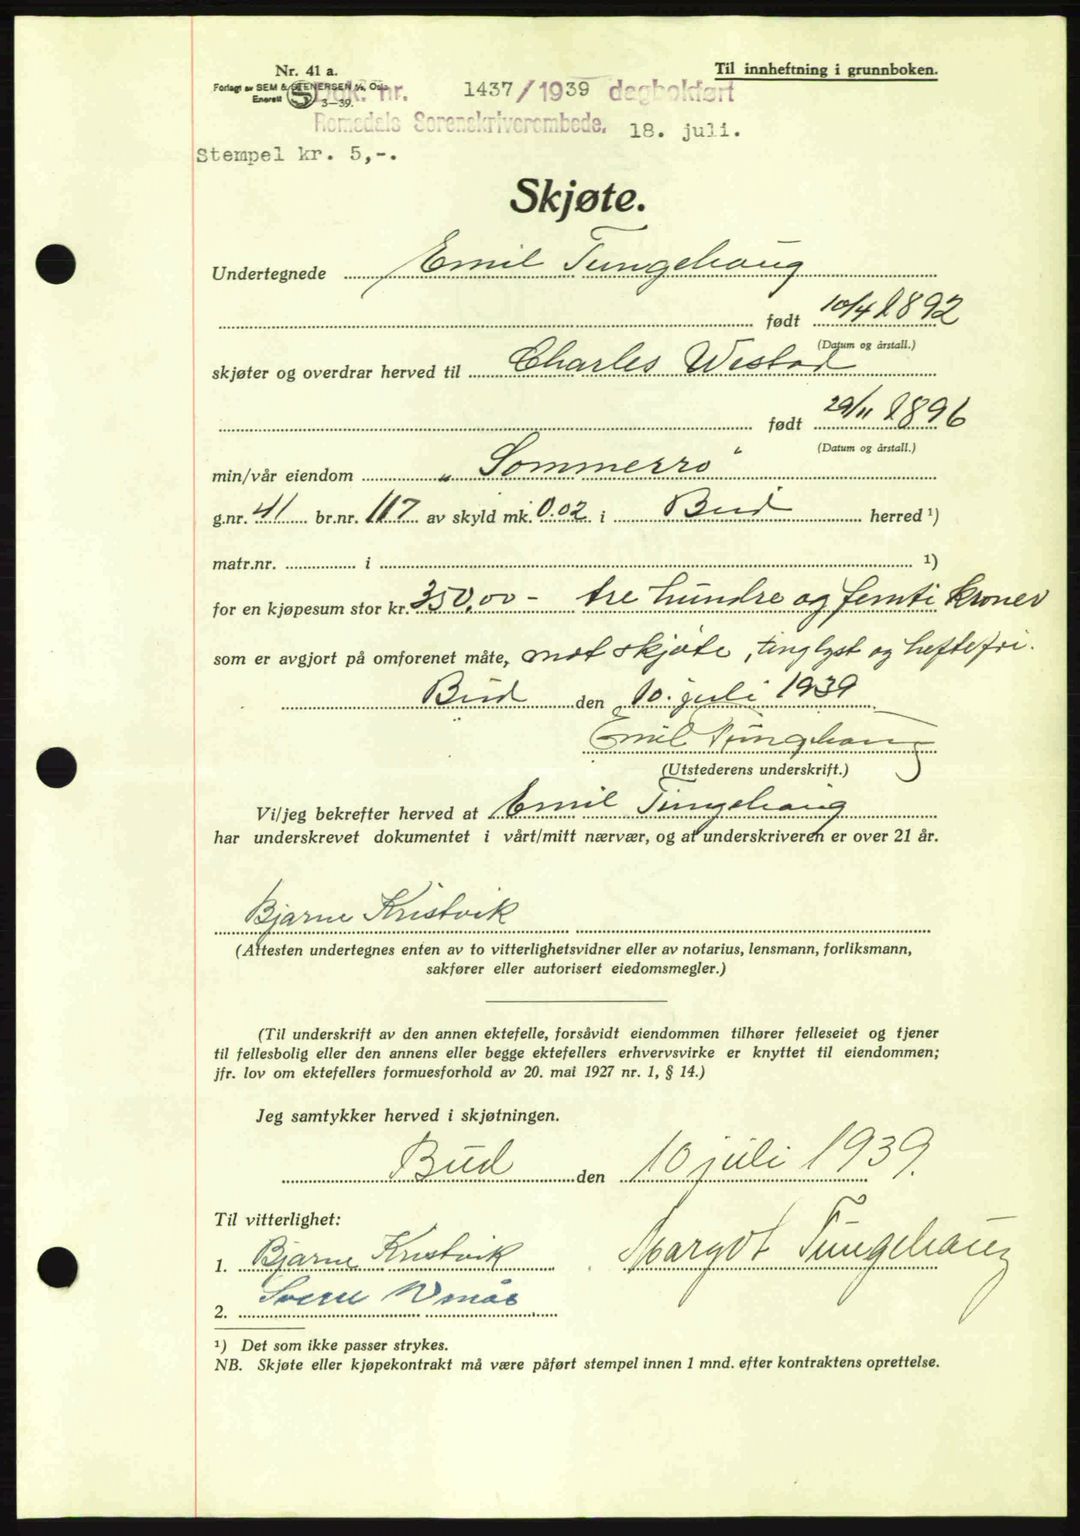 Nr. 41 a.
Til innheftning i grunnboken.
Forlagt av SEM & STENERSEN A/S, Oslo
Enerett
3—39.
Dok. nr. 1437/1939 dagbokført
Romsdals Sorenskriverembede, 18. juli.
Stempel kr. 5,-.
Skjøte.
Undertegnede Emil Tungehaug
født 10/4 1892
(Datum og årstall.)
skjøter og overdrar herved til Charles Westad
født 29/11 1896
(Datum og årstall.)
min/vår eiendom „Sommerro"
g.nr. 41 br.nr. 117 av skyld mk. 0.02 i Bud herred ¹)
matr.nr. i ¹)
for en kjøpesum stor kr. 350,00 - tre hundre og femti kroner
som er avgjort på omforenet måte, mot skjøte, tinglyst og heftefri.
Bud den 10. juli 1939
Emil Tungehaug
(Utstederens underskrift.)
Vi/jeg bekrefter herved at Emil Tungehaug
har underskrevet dokumentet i vårt/mitt nærvær, og at underskriveren er over 21 år.
Bjarne Kristvik
(Attesten undertegnes enten av to vitterlighetsvidner eller av notarius, lensmann, forliksmann,
sakfører eller autorisert eiedomsmegler.)
(Til underskrift av den annen ektefelle, forsåvidt eiendommen tilhører felleseiet og tjener
til fellesbolig eller den annens eller begge ektefellers erhvervsvirke er knyttet til eiendommen;
jfr. lov om ektefellers formuesforhold av 20. mai 1927 nr. 1, § 14.)
Jeg samtykker herved i skjøtningen.
Bud den 10 juli 1939.
Til vitterlighet:
1. Bjarne Kristvik Margot Tungehaug
2. Sverre
¹) Det som ikke passer strykes.
NB. Skjøte eller kjøpekontrakt må være påført stempel innen 1 mnd. efter kontraktens oprettelse.